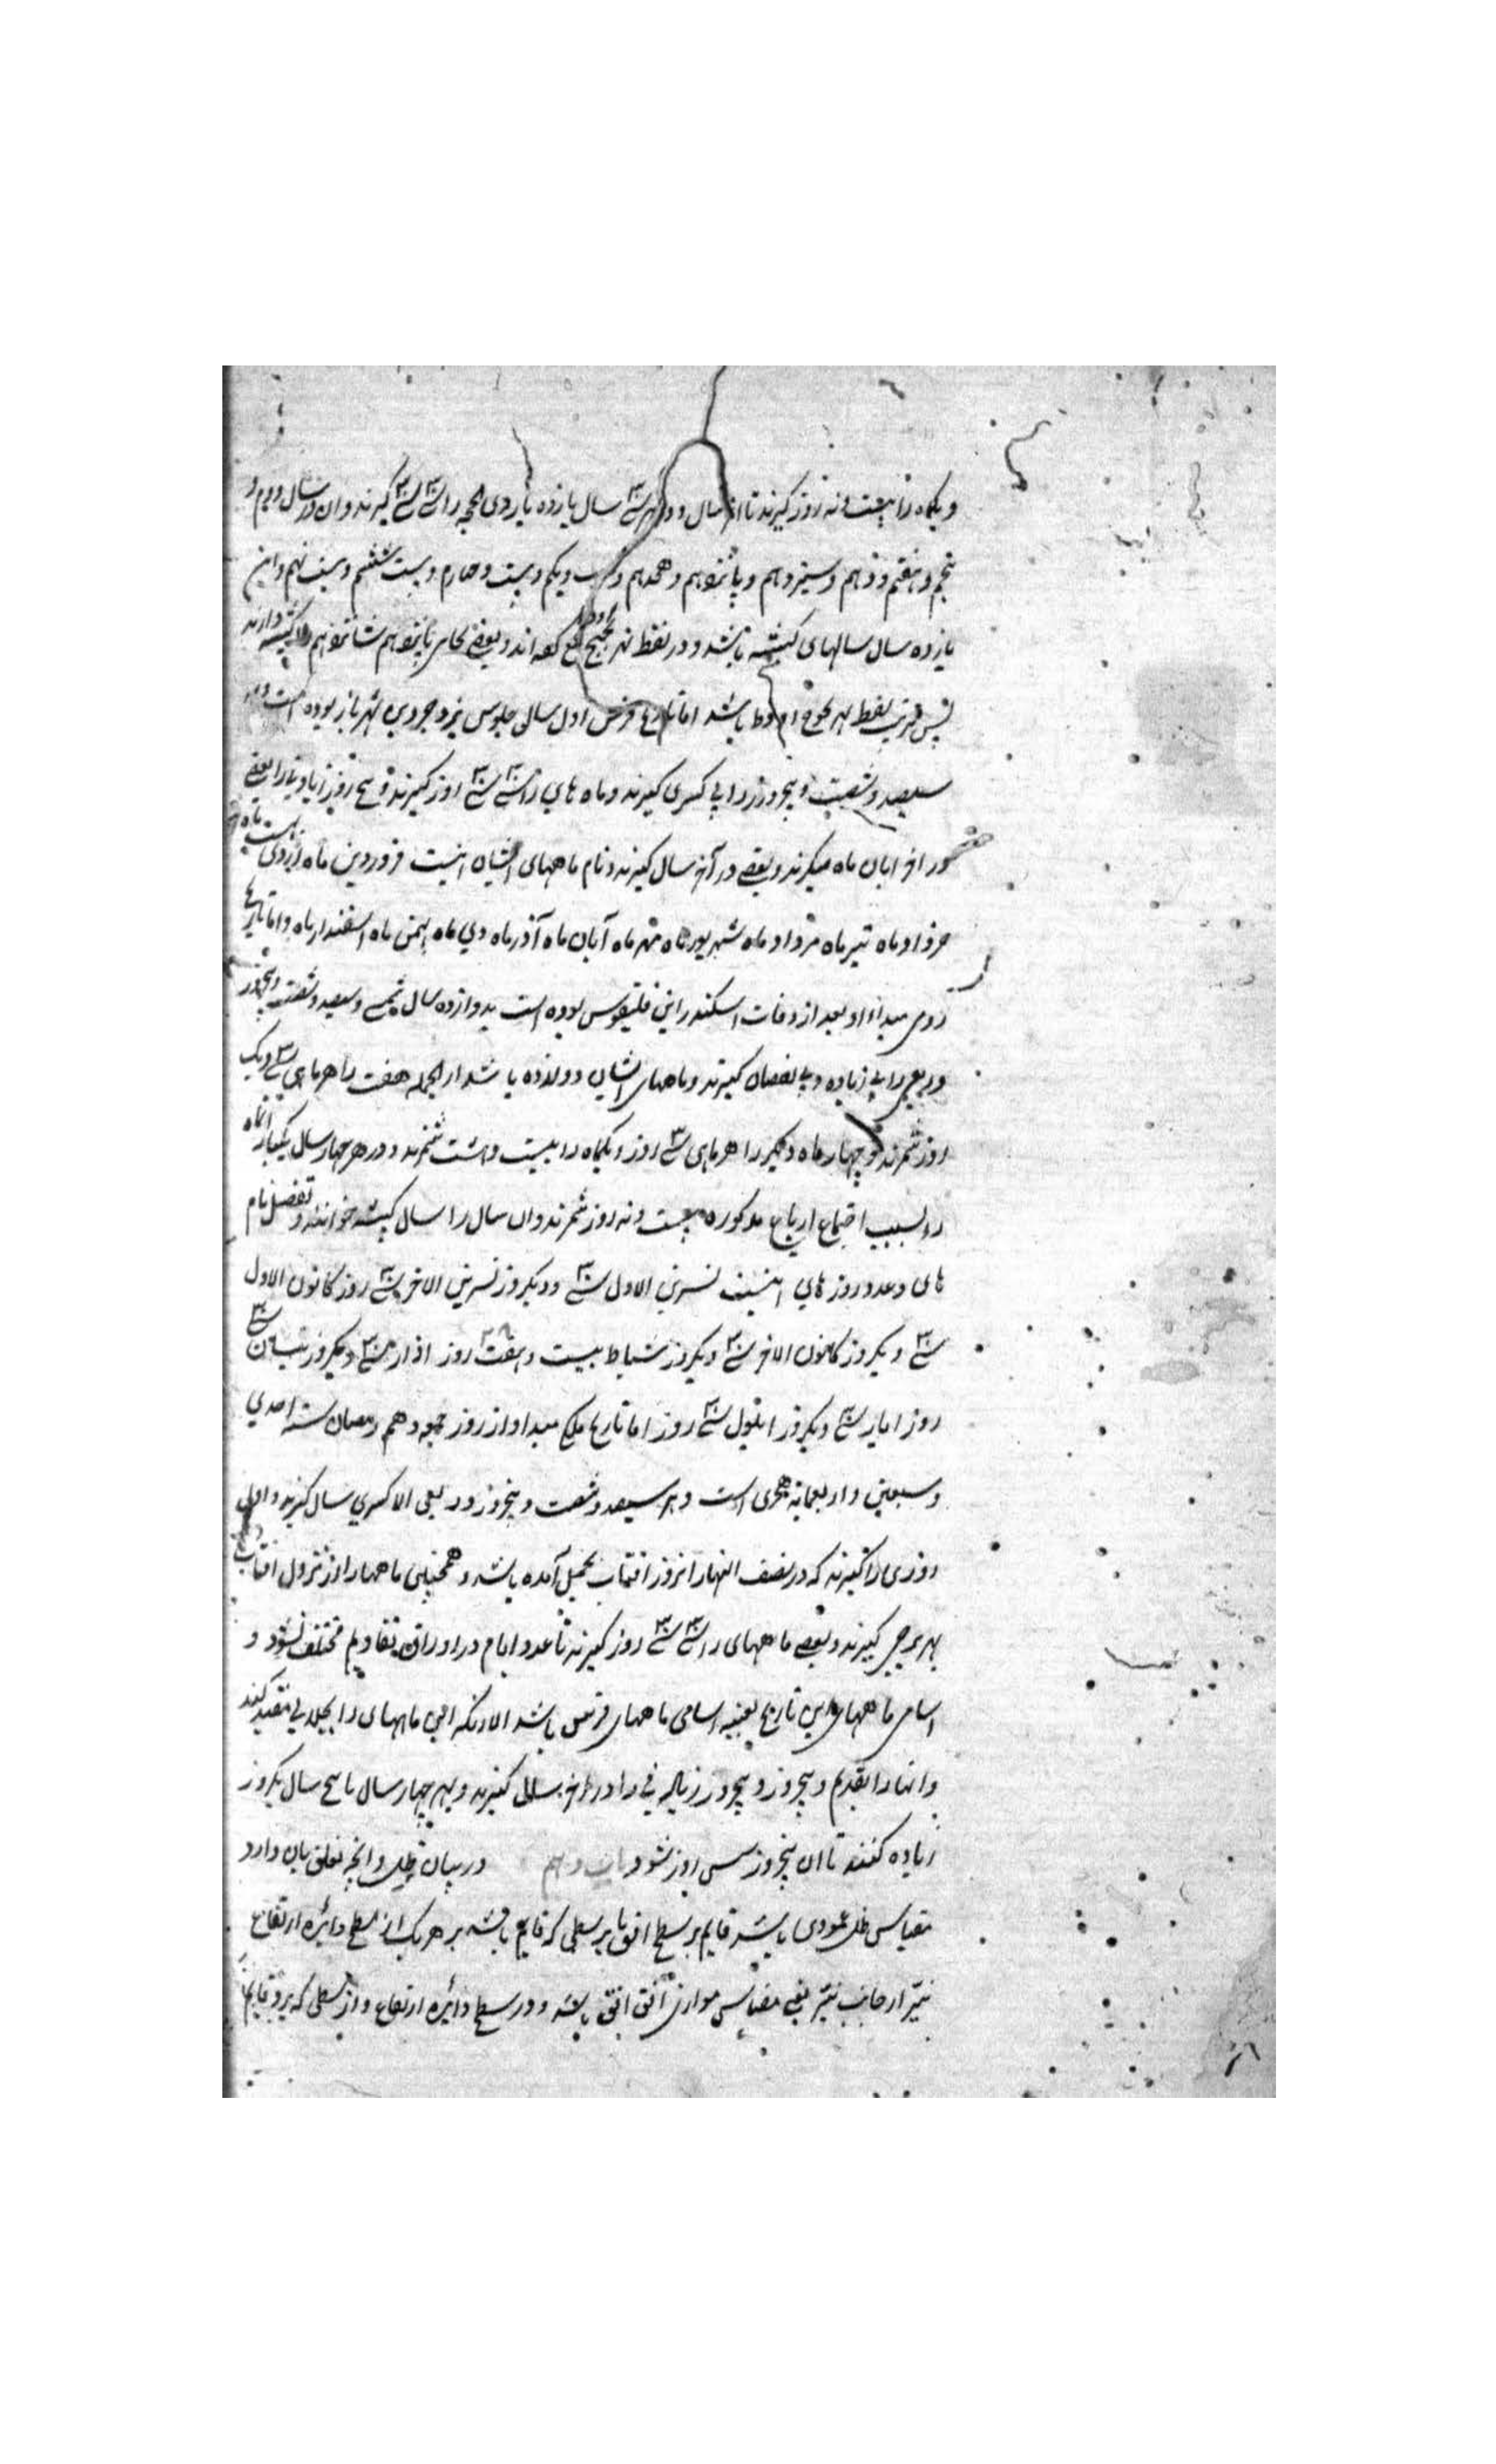 و یکماه را بیست و نه روز گیرند تا آخر سال و در هر سی سال یازده بار ذی الحجه را سی سی گیرند و ان در سال دویم و
پنجم و هفتم و دهم و سیزدهم و پانزدهم و هجدهم و بیست و یکم و بیست و چهارم و بیست ششم و بیست نهم و این
یازده سال سالهای کبیسه باشد و در لفظ بهزیجهح کفه اند و بعضی بجای پانزدهم شانزدهم را کبیسه دارند
پس ترتیب لفظ بهر باشد اما تاریخ فرس اول سالی جلوس یزدجرد بن شهریار بوده است و
سیصد و شصت و پنجروز را بی کسری گیرند و ماه های را سی سی روز گیرند و پنج روز زیاده را بعضی
در اخر ابان ماه میگیرند و بعضی در آخر سال گیرند و نام ماههای ایشان اینست فروردین ماه اردی بهشت ماه
خرداد ماه تیر ماه مرداد ماه شهریور ماه مهر ماه آبان ماه آذر ماه دی ماه بهمن ماه اسفندار ماه و اما تاریخ
رومی مبداء او بعد از وفات اسکندر ابن فلیقوس بوده است بدوازده سال شمسی و سیصد و شصت و پنجروز
و ربعی را بی زیاده و بی نقصان گیرند و ماههای ایشان دوازده باشد از انجمله هفت را هر ماهی سی و یک
روز شمرند و چهار ماه دیگر را هر ماهی سی روز و یکماه را بیست و هشت شمرند و در هر چهار سال یکبار انماه
را بسبب اجتماع ارباع مذکوره بیست و نه روز شمرند و ان سال را سال کبیسه خوانند و تفصیل نام
های و عدد روز های اینست تسرین الاول سی و یکروز تسرین الاخر سی روز کانون الاول
سی و یکروز کانون الاخر سی و یکروز شباط بیست و هشت روز اذار سی و یکروز نیسان سی
روز ایار سی و یکروز ایلول سی روز اما تاریخ ملکی مبدا او از روز جمعه دهم رمضان سنه احدی
و سبعین و اربعمایه هجری است و هر سیصد و شصت و پنجروز و ربعی الا کسری سال گیرند و اول
روزی را گیرند که در نصف النهار انروز افتاب بحمل آمده باشد و همچنین ماهها را از نزول افتاب
بهر برجی گیرند و بعضی ماههای را سی سی روز گیرند تا عدد ایام در اوراق تقاویم مختلف نشود و
اسامی ماههای این تاریخ بعینه اسامی ماههای فرس باشد الا انکه این ماههای را بجلالی مقید کنند
و انها را بقدیم و پنجروز و پنجروز زیاد فی را در اخر سال گیرند و بهر چهار سال یا پنج سال یکروز
زیاده کنند تا ان پنجروز شش روز شود باب دهم در بیان ظل و انچه تعلق بان دارد
مقیاس ظل عمودی باشد قایم بر سطح افق یا بر سطحی که قایم باشد بر هر یک از سطح دایره ارتفاع
نیر از جانب نیر یعنی مقیاس موازی افق باشد و در سطح دائره ارتفاع و از سطحی که بر و قایم